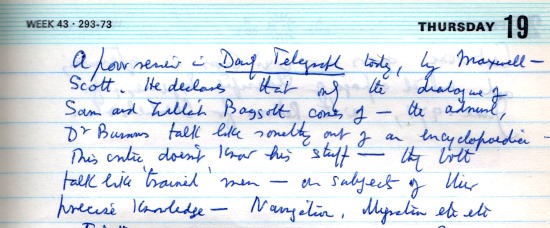 WEEK 43 · 293-73
THURSDAY 19
A poor review in Daily Telegraph today, by Maxwell-
Scott. He declares that only the dialogue of
Sam and Bagsott comes off — the
Dr Burrows talk like something out of an encyclopaedia —
This critic doesn't know his stuff — they both
talk like 'trained' men — on subjects of their
precise knowledge — Navigation, Migration etc etc